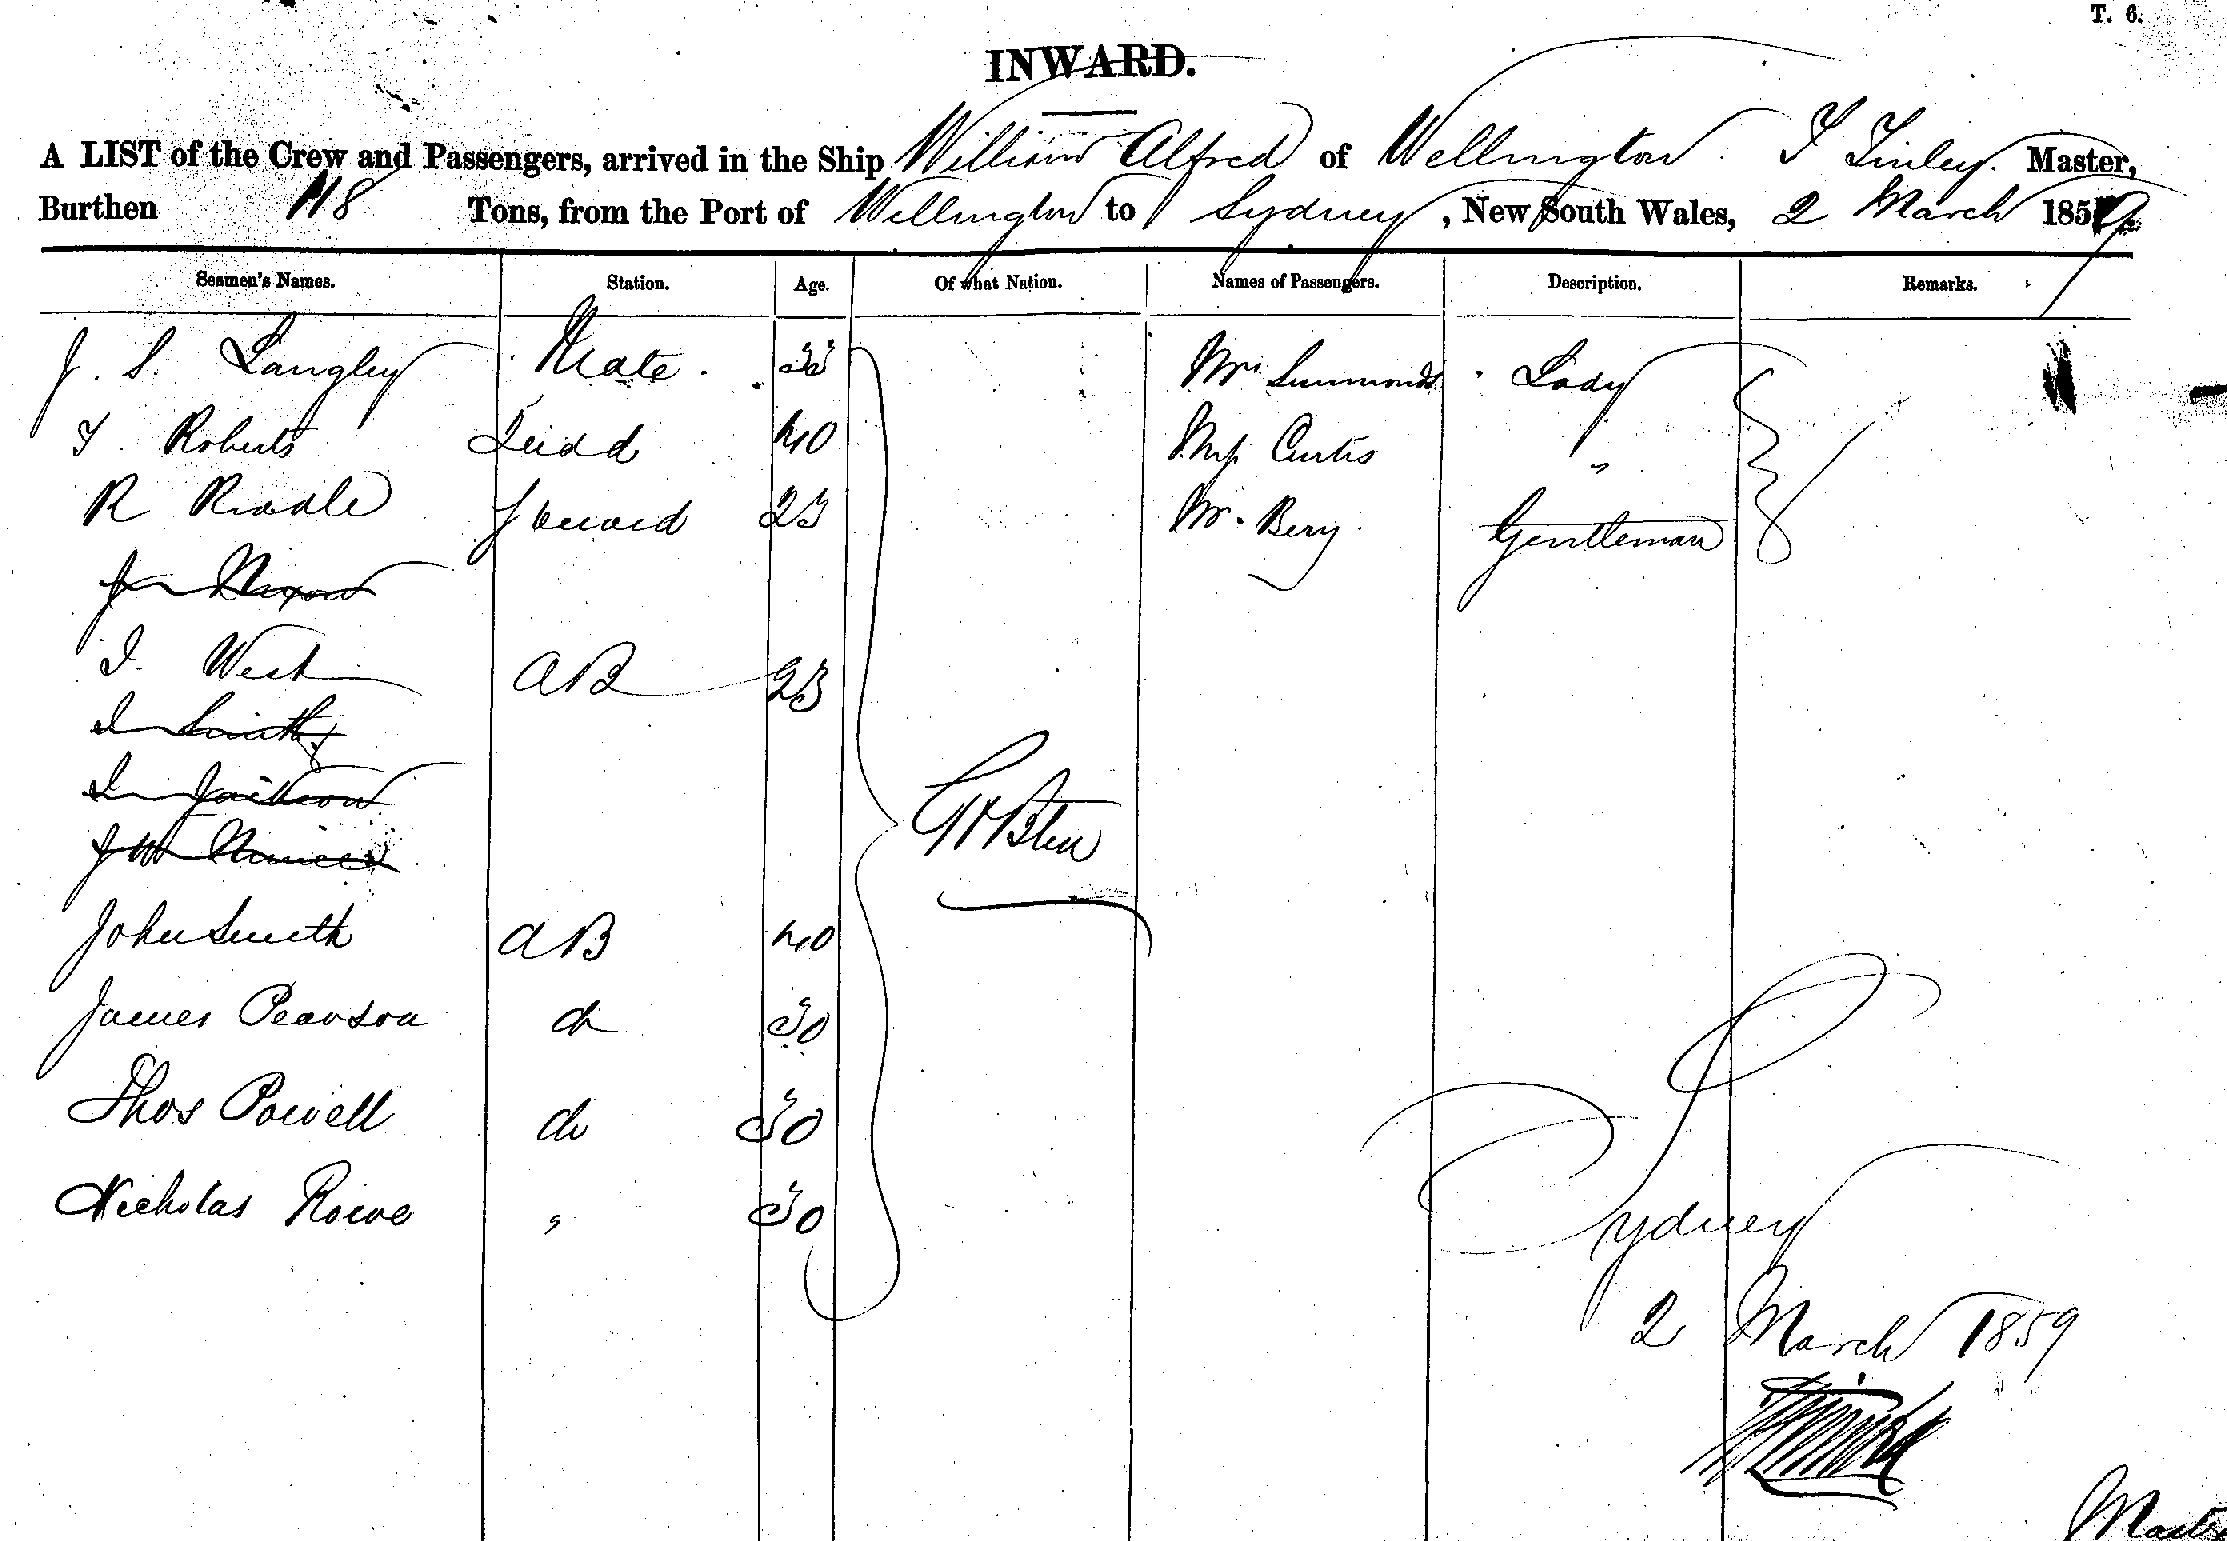 T. 6.
INWARD.
A LIST of the Crew and Passengers, arrived in the Ship William Alfred of Wellington J Tinley Master,
Burthen 118 Tons, from the Port of Wellington to Sydney, New South Wales, 2 March 1859
Seamen's Names. Station. Age. Of what Nation. Names of Passengers. Description. Remarks.
J. S. Langley Mate Mrs Summonds Lady
T Roberts 40 Curtis "
R Riddle 23 Mr. Bery Gentleman
J Nixon
J. West AB 23
J Smith
J Jackson
Gt Btn
John Smith AB 40
James Pearson do 30
Thos Powell do 30
Nicholas Rowe " 30
Sydney
2 March 1859
Master